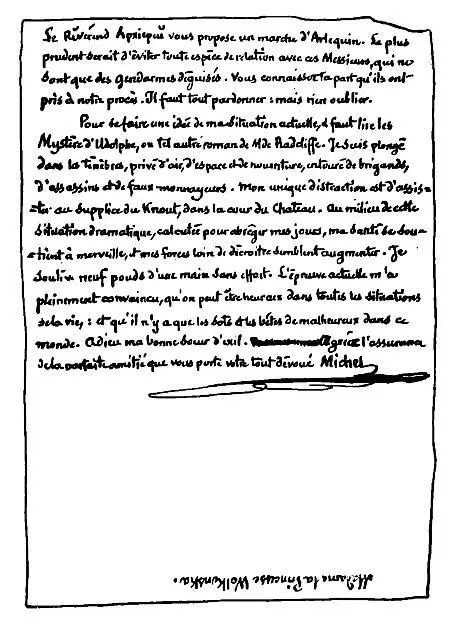 Le Révérend Apziepui vous propose un marche d'Arlequin. Le plus
prudent serait d'éviter toute espèce de relation avec ces Messieurs, qui ne
sont que des gendarmes déguisés. Vous connaissez la part qu'ils ont
pris à notre procès. Il faut tout pardonner : mais rien oublier.
Pour se faire une idée de ma situation actuelle, il faut lire les
Mystère d'Udolphe, ou tel autre roman de Mde Radcliffe. Je suis plongé
dans les ténèbres, privé d'air, d'espace et de nourriture, entouré de brigands,
d'assassins et de faux monnayeurs. Mon unique distraction est d'assis-
-ter au supplice du Knout, dans la cour du Chateau. Au milieu de cette
situation dramatique, calculée pour abréger mes jours, ma santé se sou-
-tient à merveille, et mes forces loin de décroitre semblent augmenter. Je
soulève neuf pouds d'une main sans effort. L'épreuve actuelle m'a
pleinement convaincu, qu'on peut être heureux dans toutes les situations
de la vie, : et qu'il n'y a que les sots et les bêtes de malheureux dans ce
monde. Adieu ma bonne sœur d'exil. Agréez l'assurance
de la parfaite amitié que vous porte votre tout dévoué Michel
Madame la Princesse Wolkonska.